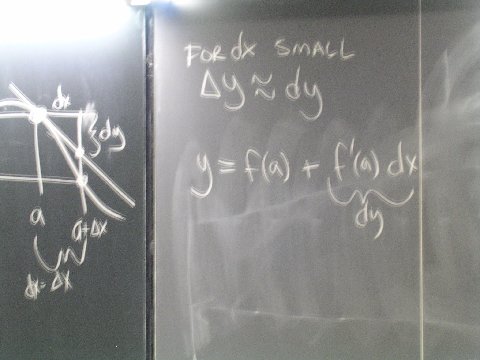 dx
dy
a
a+Δx
dx = Δx
FOR dx SMALL
Δy ≈ dy
y = f(a) + f'(a) dx
dy